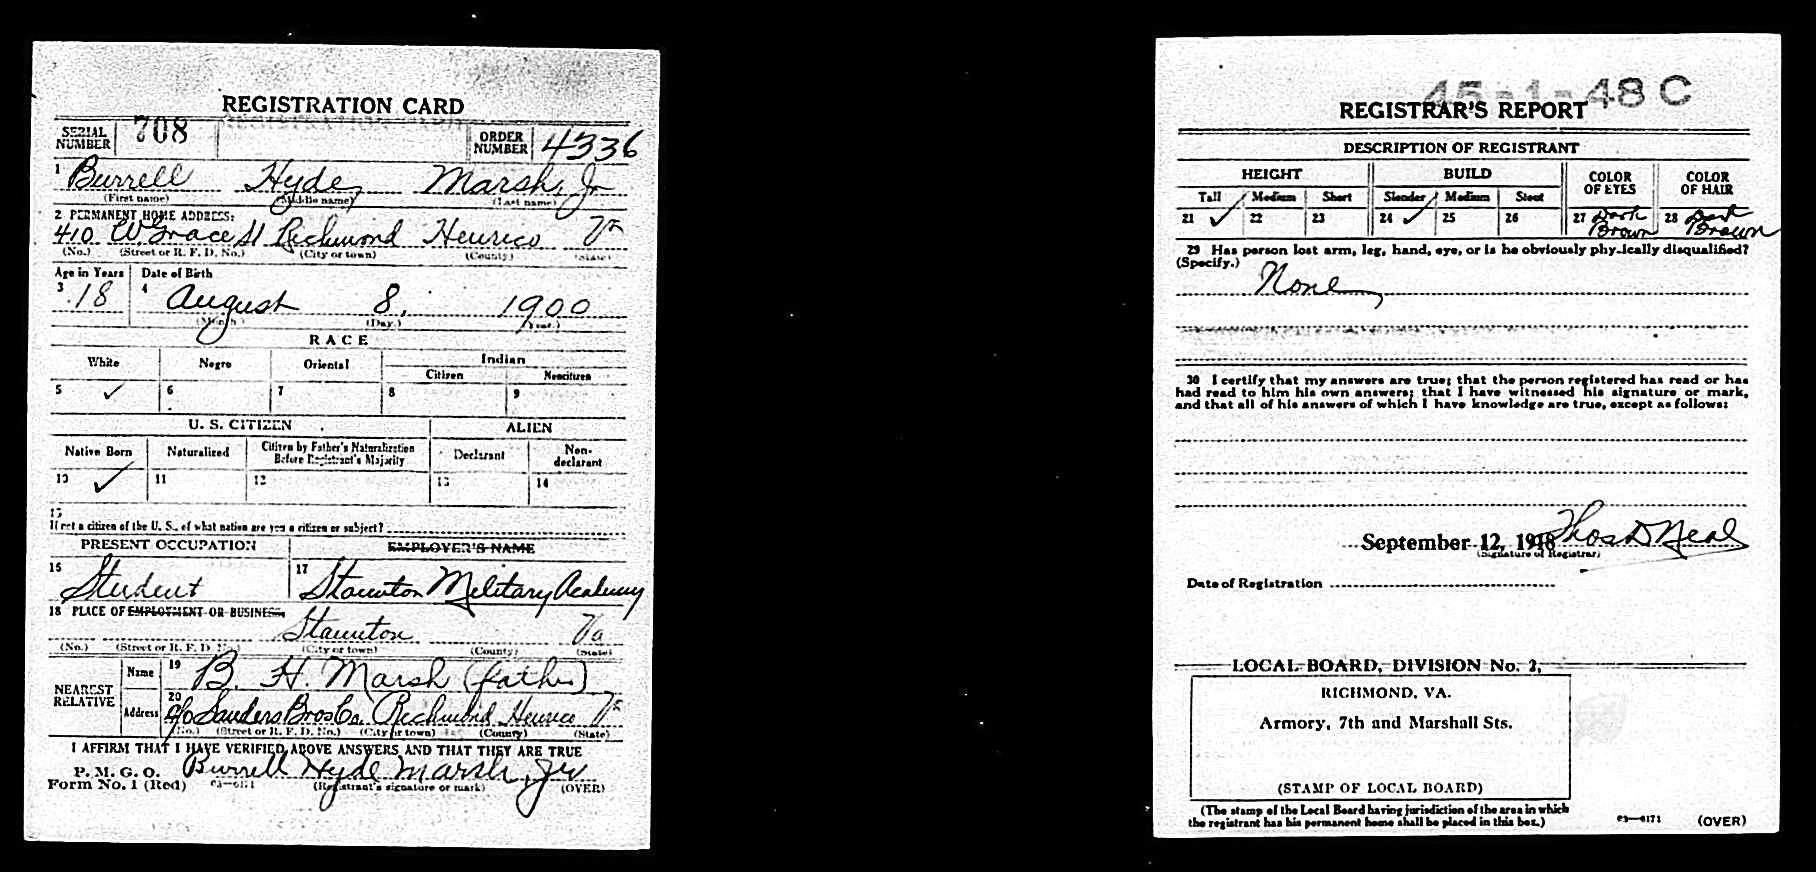 REGISTRATION CARD
SERIAL NUMBER 708 ORDER NUMBER 4336
1 Burrell Hyde Marsh, Jr
(First name) (Middle name) (Last name)
2 PERMANENT HOME ADDRESS:
410 W Grace St Richmond Henrico Va
(No.) (Street or R. F. D. No.) (City or town) (County) (State)
Age in Years Date of Birth
3 18 4 August 8, 1900
(Month.) (Day.) (Year.)
RACE
White Negro Oriental Indian
Citizen Noncitizen
5 ✓ 6 7 8 9
U. S. CITIZEN ALIEN
Native Born Naturalized Citizen by Father's Naturalization Before Registrant's Majority Declarant Non-declarant
10 ✓ 11 12 13 14
15
If not a citizen of the U. S., of what nation are you a citizen or subject?
PRESENT OCCUPATION EMPLOYER'S NAME
16 Student 17 Staunton Military Academy
18 PLACE OF EMPLOYMENT OR BUSINESS,
Staunton Va
(No.) (Street or R. F. D. No.) (City or town) (County) (State)
NEAREST RELATIVE Name 19 B. H. Marsh (father)
Address 20 c/o Sanders Bros Co. Richmond Henrico Va
(No.) (Street or R. F. D. No.) (City or town) (County) (State)
I AFFIRM THAT I HAVE VERIFIED ABOVE ANSWERS AND THAT THEY ARE TRUE
P. M. G. O.
Form No. 1 (Red) 03—6171 Burrell Hyde Marsh, Jr
(Registrant's signature or mark) (OVER)
45-1-48 C
REGISTRAR'S REPORT
DESCRIPTION OF REGISTRANT
HEIGHT BUILD COLOR OF EYES COLOR OF HAIR
Tall Medium Short Slender Medium Stout
21 ✓ 22 23 24 ✓ 25 26 27 Dark Brown 28 Dark Brown
29 Has person lost arm, leg, hand, eye, or is he obviously physically disqualified?
(Specify.) None
30 I certify that my answers are true; that the person registered has read or has
had read to him his own answers; that I have witnessed his signature or mark,
and that all of his answers of which I have knowledge are true, except as follows:
September 12, 1918 Thos D Neal
(Signature of Registrar)
Date of Registration
LOCAL BOARD, DIVISION No. 2,
RICHMOND, VA.
Armory, 7th and Marshall Sts.
(STAMP OF LOCAL BOARD)
(The stamp of the Local Board having jurisdiction of the area in which
the registrant has his permanent home shall be placed in this box.) 03—6171 (OVER)